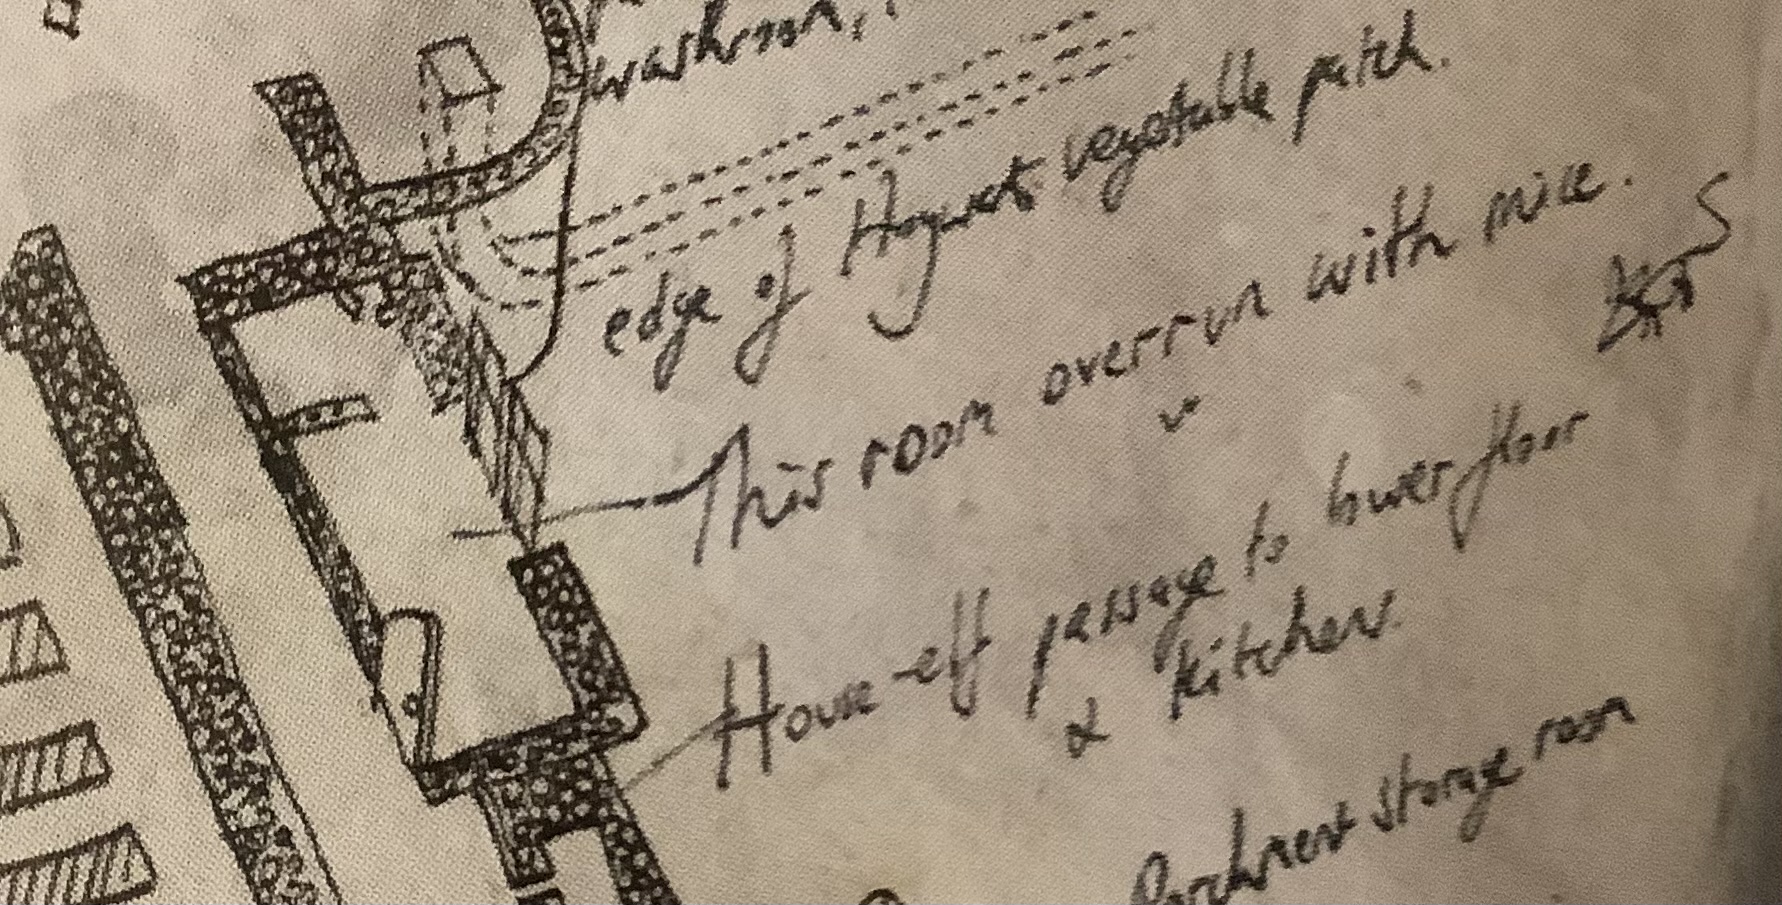 washroom,
edge of Hogwarts vegetable patch.
This room overrun with mice.
House-elf passage to lower floor
& kitchens.
Parchment storage room